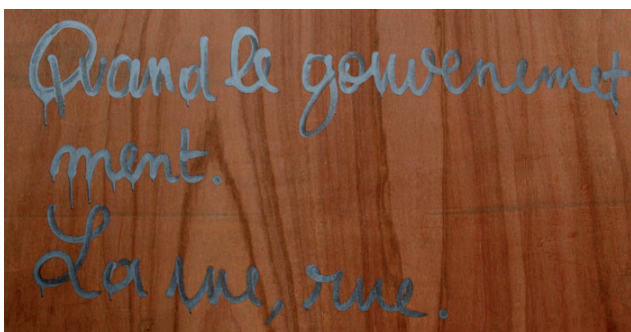 Quand le gouvenemet
ment.
La rue, rue.